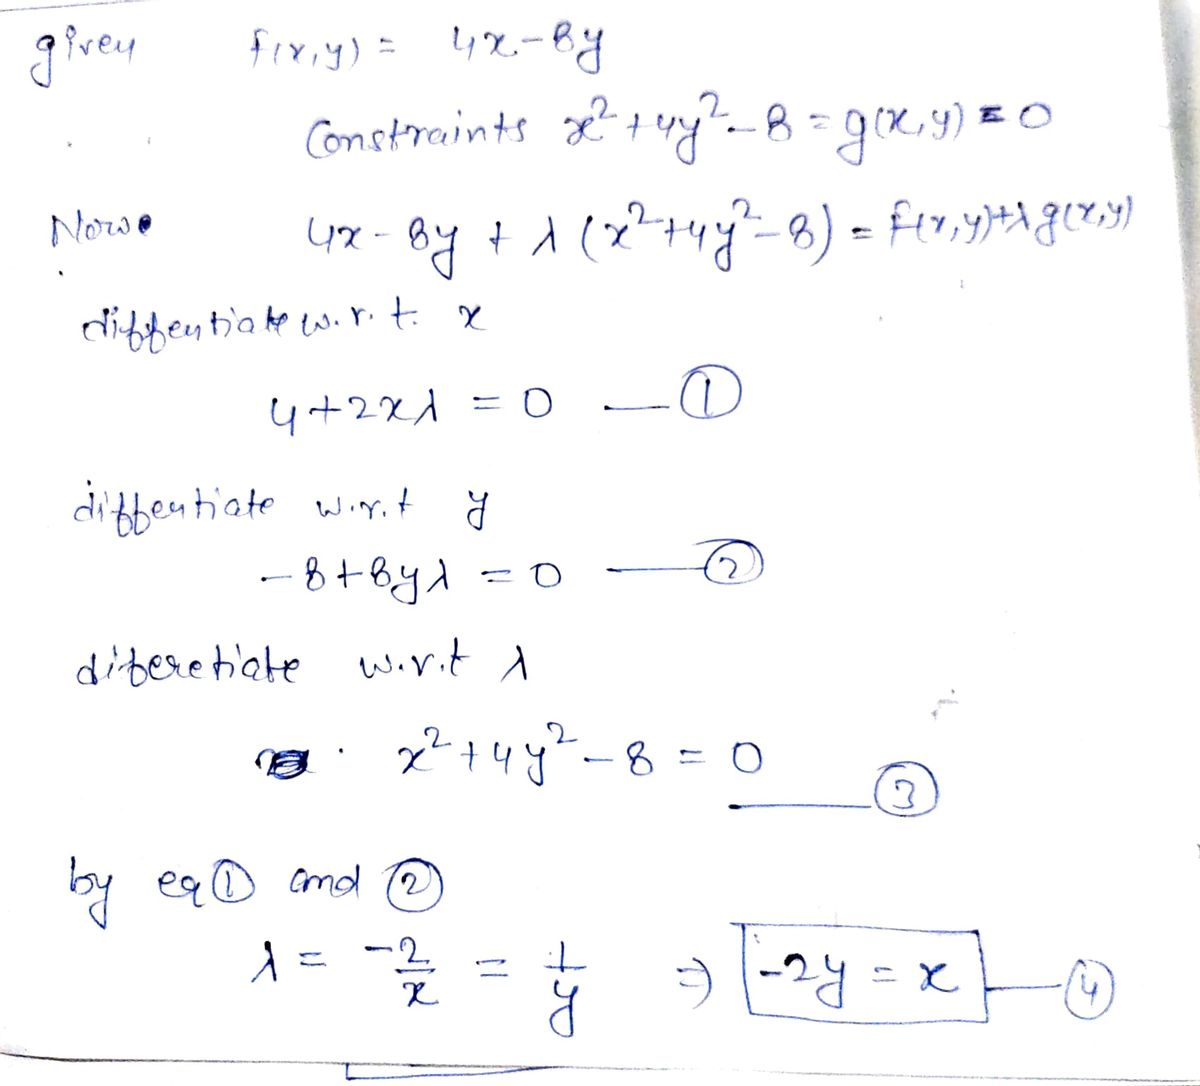 given f(x,y) = 4x-8y
Constraints x²+4y²-8 = g(x,y) = 0
Now 4x-8y + λ(x²+4y²-8) = f(x,y)+λg(x,y)
diffentiate w.r.t. x
4+2xλ = 0 — ①
diffentiate w.r.t y
-8+8yλ = 0 — ②
diferetiate w.r.t λ
x²+4y²-8 = 0 — ③
by eq ① and ②
λ = -2/x = 1/y ⇒ -2y = x — ④